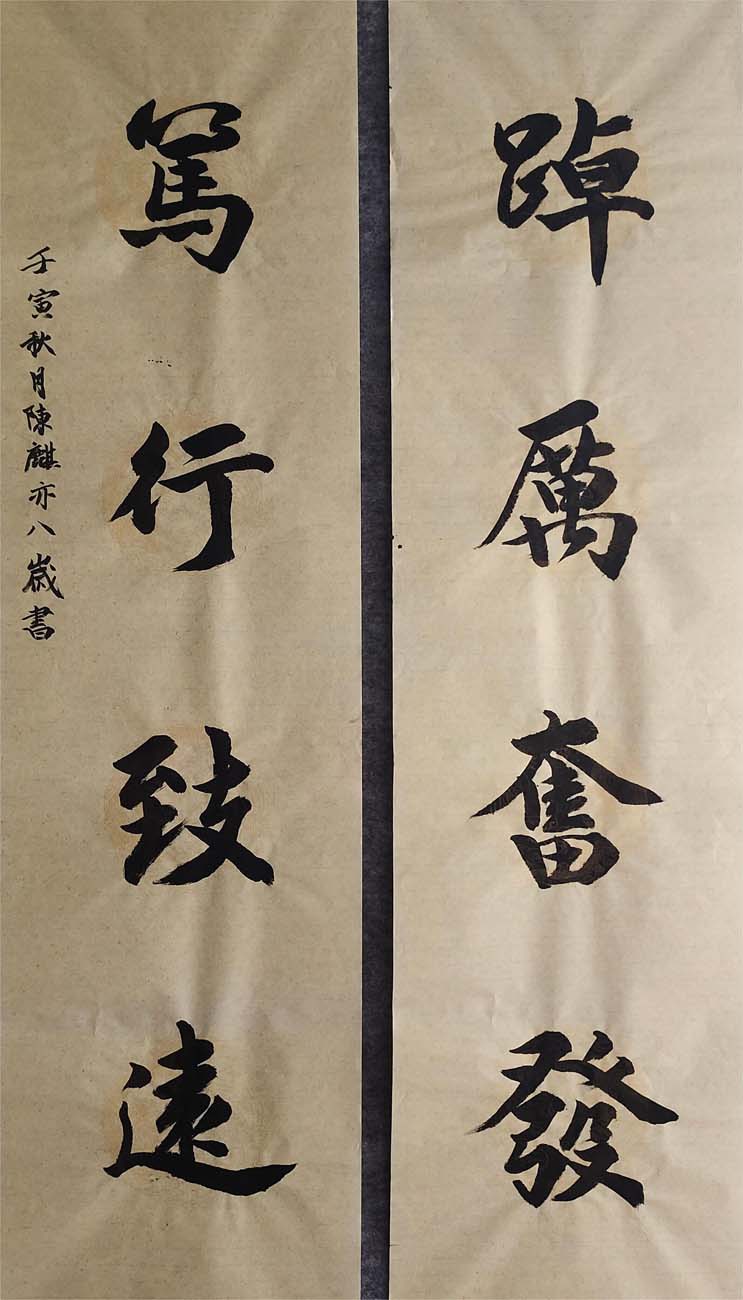 踔厲奮發
篤行致遠
壬寅秋月陳麒亦八歲書